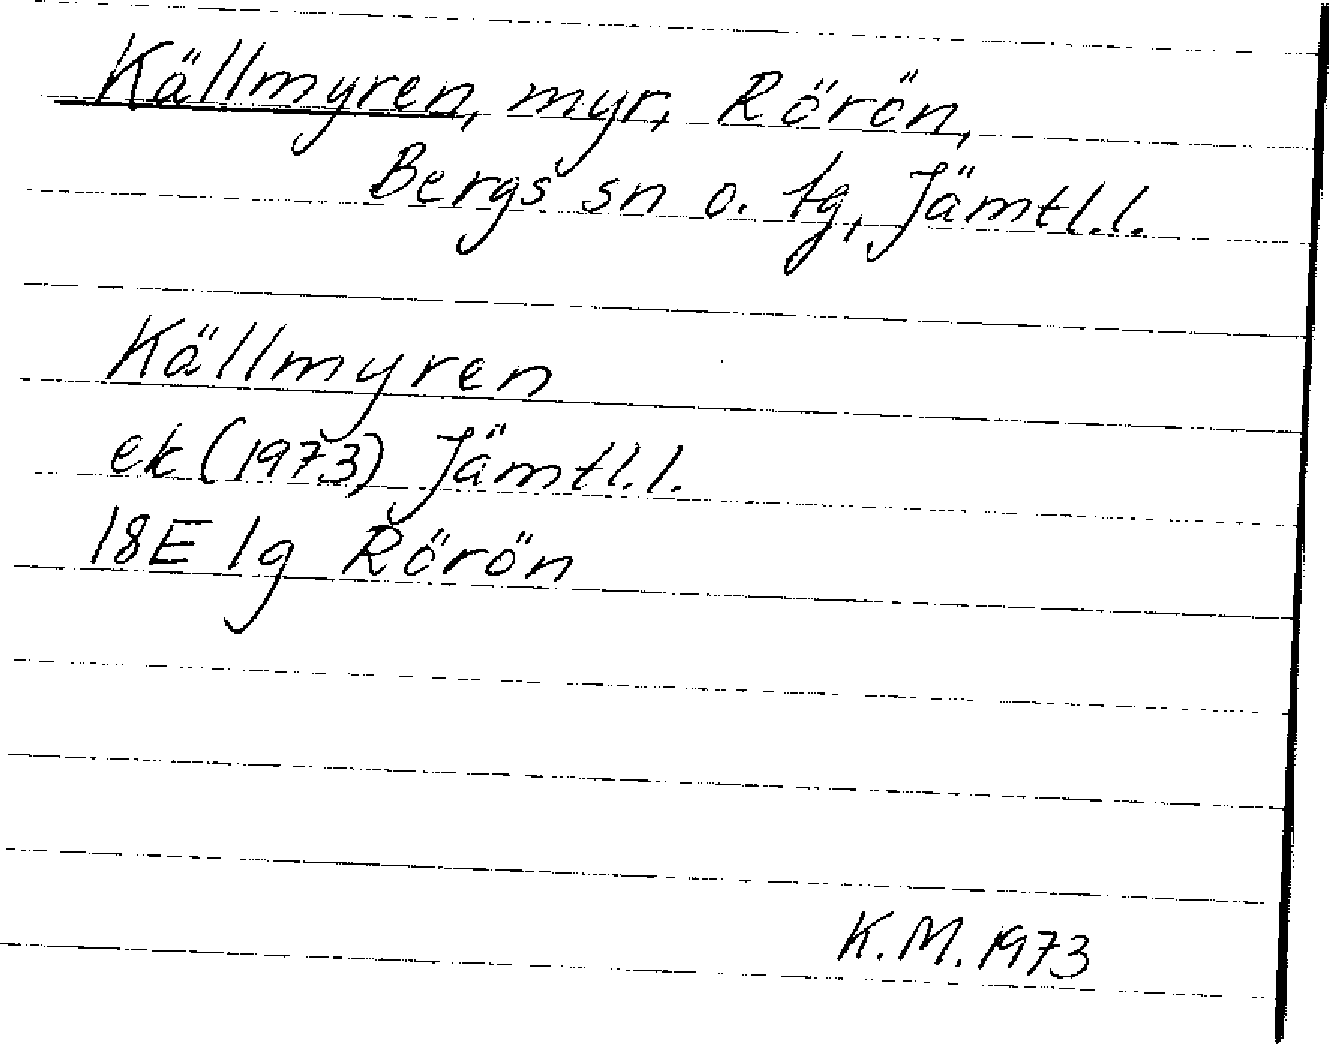 Källmyren, myr, Rörön,
Bergs sn o. tg, Jämtl.l.
Källmyren
ek (1973) Jämtl.l.
18E 1g Rörön
K.M. 1973